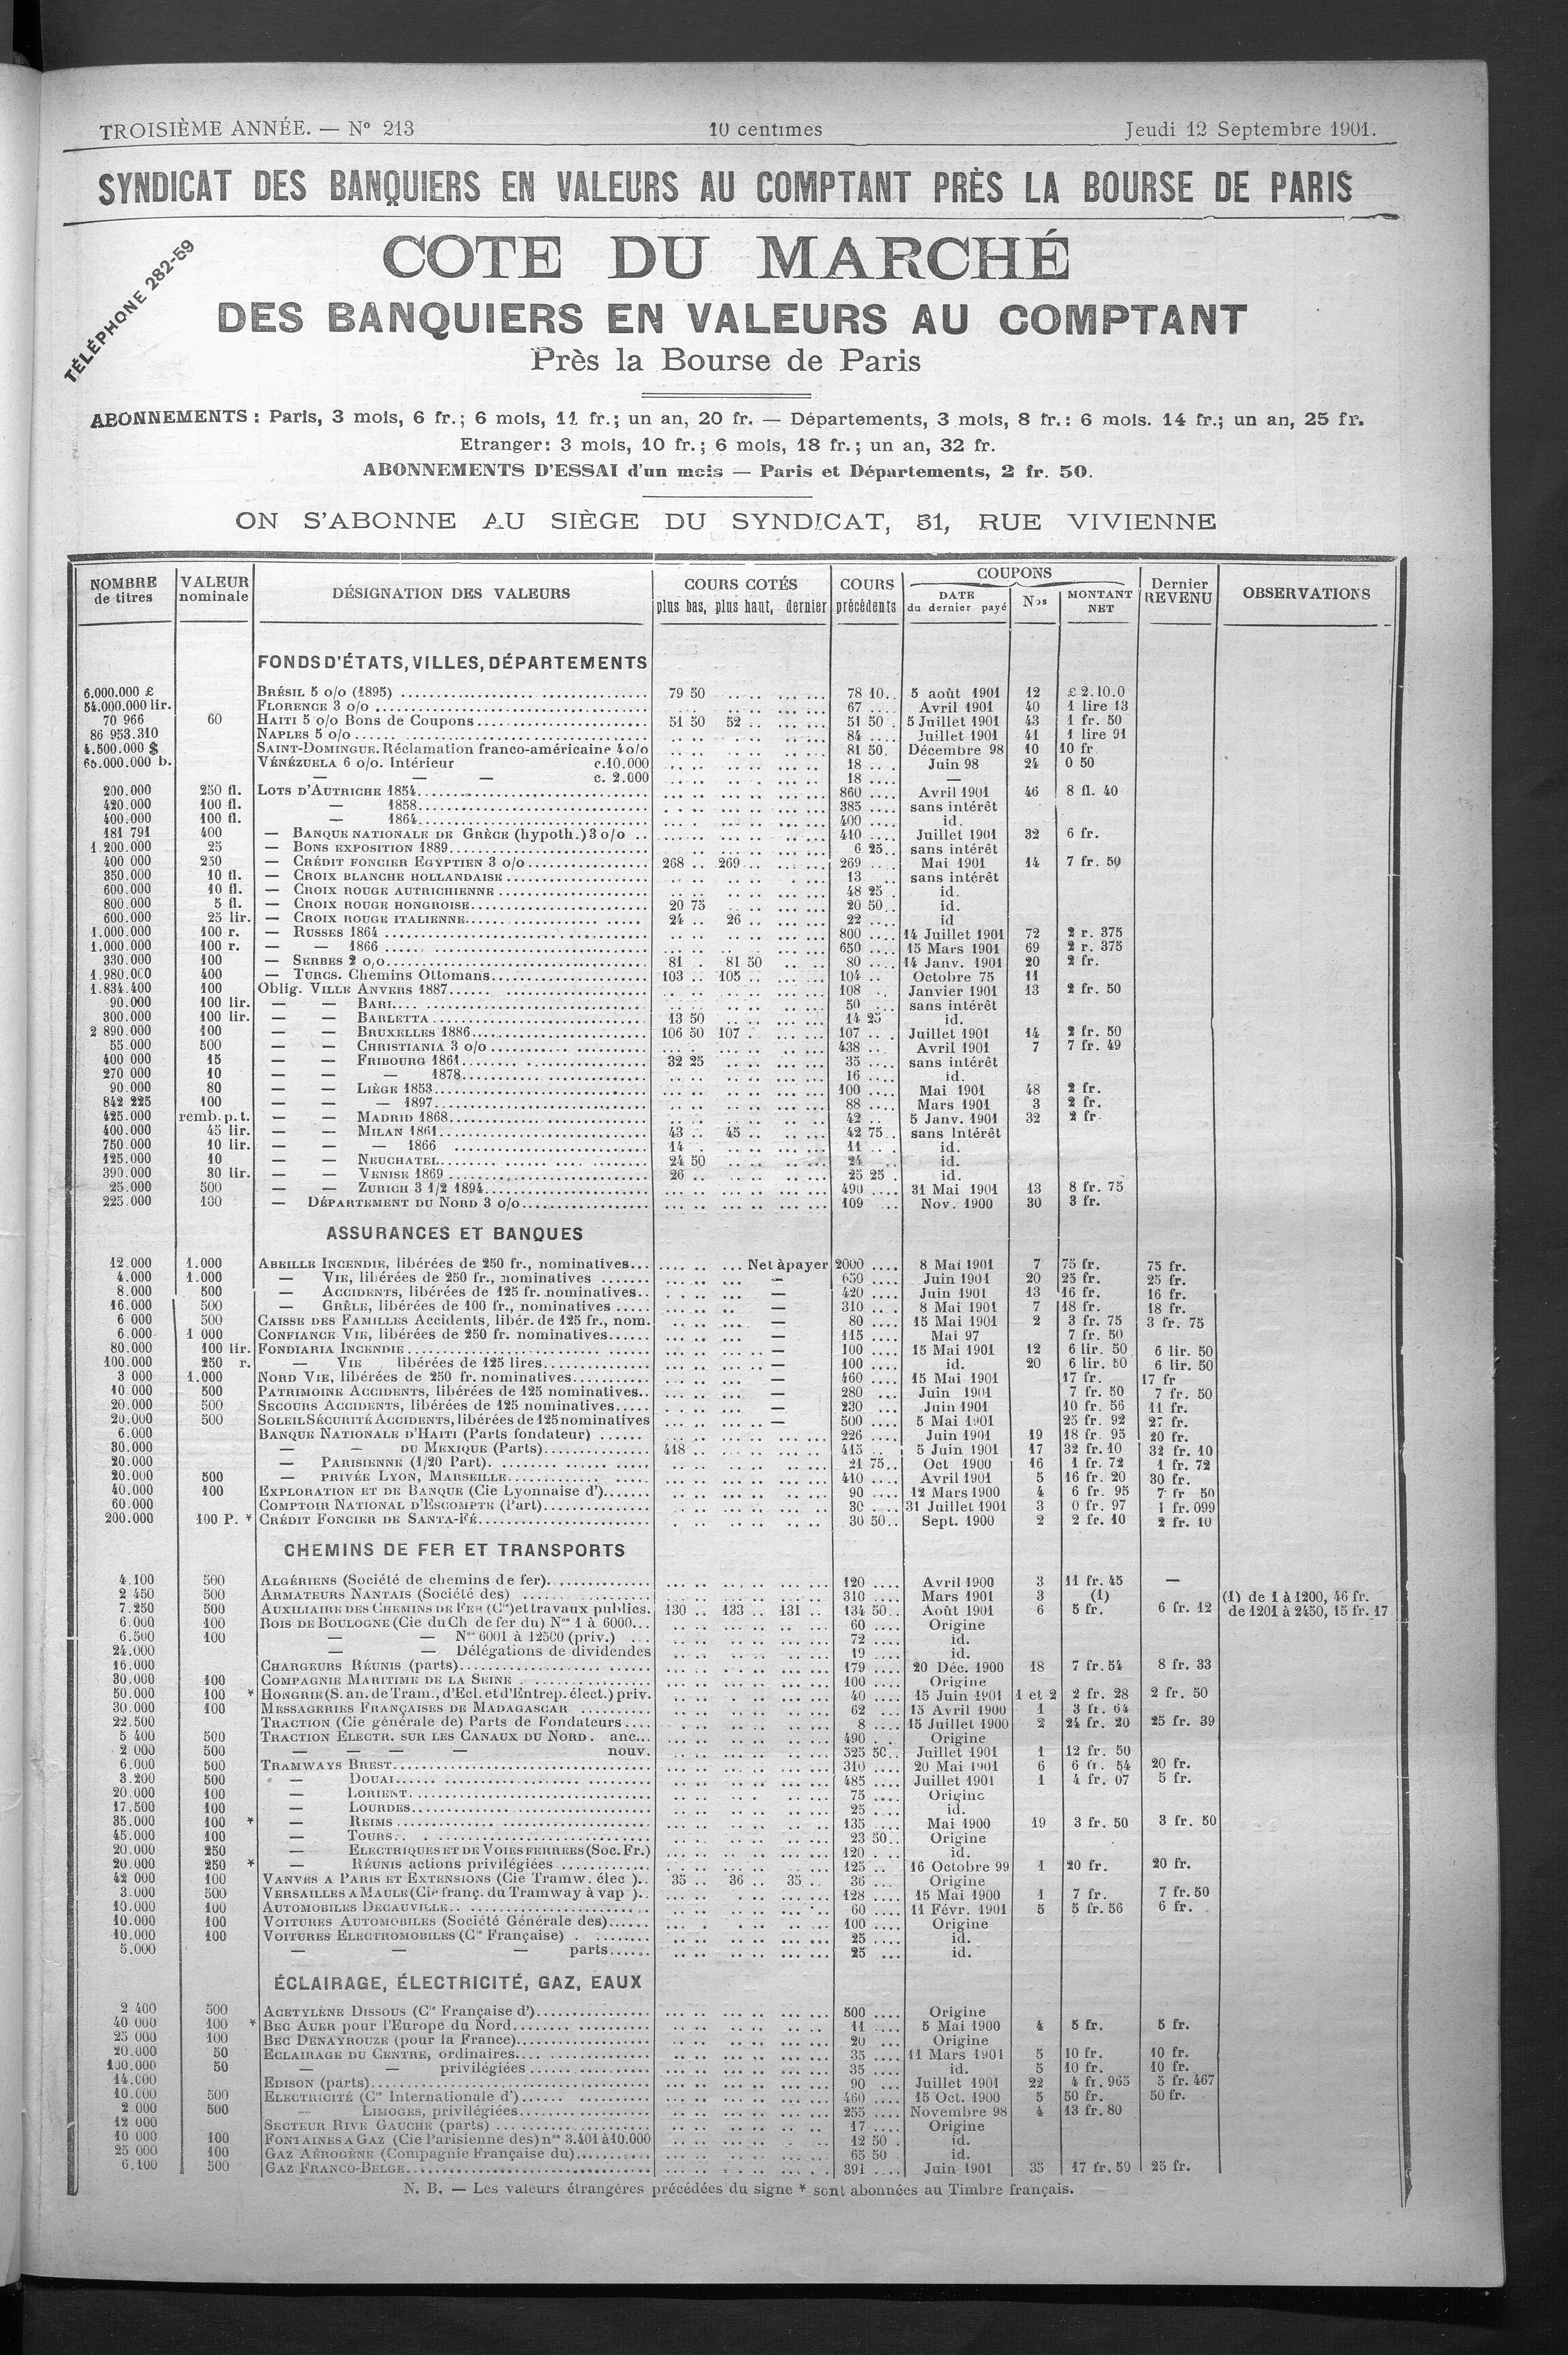 TROISIÈME ANNÉE. — N° 213 10 centimes Jeudi 12 Septembre 1901.
SYNDICAT DES BANQUIERS EN VALEURS AU COMPTANT PRÈS LA BOURSE DE PARIS
TÉLÉPHONE 282-59
COTE DU MARCHÉ
DES BANQUIERS EN VALEURS AU COMPTANT
Près la Bourse de Paris
ABONNEMENTS : Paris, 3 mois, 6 fr.; 6 mois, 11 fr.; un an, 20 fr. — Départements, 3 mois, 8 fr.: 6 mois. 14 fr.; un an, 25 fr.
Etranger: 3 mois, 10 fr.; 6 mois, 18 fr.; un an, 32 fr.
ABONNEMENTS D'ESSAI d'un mois — Paris et Départements, 2 fr. 50.
ON S'ABONNE AU SIÈGE DU SYNDICAT, 31, RUE VIVIENNE
NOMBRE de titres VALEUR nominale DÉSIGNATION DES VALEURS COURS COTÉS plus bas, plus haut, dernier COURS précédents COUPONS DATE du dernier payé Nos MONTANT NET Dernier REVENU OBSERVATIONS
FONDS D'ÉTATS, VILLES, DÉPARTEMENTS
6.000.000 £ BRÉSIL 5 o/o (1895) 79 50 78 10 5 août 1901 12 £ 2.10.0
54.000.000 lir. FLORENCE 3 o/o 67 Avril 1901 40 1 lire 13
70 966 60 HAITI 5 o/o Bons de Coupons 51 50 52 51 50 5 Juillet 1901 43 1 fr. 50
86 953.310 NAPLES 5 o/o 84 Juillet 1901 41 1 lire 91
4.500.000 $ SAINT-DOMINGUE. Réclamation franco-américaine 4 o/o 81 50 Décembre 98 10 10 fr
60.000.000 b. VÉNÉZUELA 6 o/o. Intérieur c.10.000 18 Juin 98 24 0 50
— — — c. 2.000 18 —
200.000 250 fl. LOTS D'AUTRICHE 1854 860 Avril 1901 46 8 fl. 40
420.000 100 fl. — 1858 385 sans intérêt
400.000 100 fl. — 1864 400 id.
181 791 400 — BANQUE NATIONALE DE GRÈCE (hypoth.) 3 o/o 410 Juillet 1901 32 6 fr.
1.200.000 25 — BONS EXPOSITION 1889 6 25 sans intérêt
400 000 250 — CRÉDIT FONCIER EGYPTIEN 3 o/o 268 269 269 Mai 1901 14 7 fr. 50
350.000 10 fl. — CROIX BLANCHE HOLLANDAISE 13 sans intérêt
600.000 10 fl. — CROIX ROUGE AUTRICHIENNE 48 25 id.
800.000 5 fl. — CROIX ROUGE HONGROISE 20 75 20 50 id.
600.000 25 lir. — CROIX ROUGE ITALIENNE 24 26 22 id
1.000.000 100 r. — RUSSES 1864 800 14 Juillet 1901 72 2 r. 375
1.000.000 100 r. — — 1866 650 15 Mars 1901 69 2 r. 375
330.000 100 — SERBES 2 o/o 81 81 50 80 14 Janv. 1901 20 2 fr.
1.980.000 400 — TURCS. Chemins Ottomans 103 105 104 Octobre 75 11
1.834.400 100 Oblig. VILLE ANVERS 1887 108 Janvier 1901 13 2 fr. 50
90.000 100 lir. — — BARI 50 sans intérêt
300.000 100 lir. — — BARLETTA 13 50 14 25 id.
2 890.000 100 — — BRUXELLES 1886 106 50 107 107 Juillet 1901 14 2 fr. 50
55.000 500 — — CHRISTIANIA 3 o/o 438 Avril 1901 7 7 fr. 49
400 000 15 — — FRIBOURG 1861 32 25 35 sans intérêt
270 000 10 — — — 1878 16 id.
90.000 80 — — LIÈGE 1853 100 Mai 1901 48 2 fr.
842 225 100 — — — 1897 88 Mars 1901 3 2 fr.
425.000 remb. p. t. — — MADRID 1868 42 5 Janv. 1901 32 2 fr.
400.000 45 lir. — — MILAN 1861 43 45 42 75 sans Intérêt
750.000 10 lir. — — — 1866 14 11 id.
125.000 10 — — NEUCHATEL 24 50 24 id.
390.000 30 lir. — — VENISE 1869 26 25 25 id.
25.000 500 — — ZURICH 3 1/2 1894 490 31 Mai 1901 13 8 fr. 75
225.000 100 — DÉPARTEMENT DU NORD 3 o/o 109 Nov. 1900 30 3 fr.
ASSURANCES ET BANQUES
12.000 1.000 ABEILLE INCENDIE, libérées de 250 fr., nominatives Net à payer 2000 8 Mai 1901 7 75 fr. 75 fr.
4.000 1.000 — VIE, libérées de 250 fr., nominatives — 650 Juin 1901 20 25 fr. 25 fr.
8.000 500 — ACCIDENTS, libérées de 125 fr. nominatives — 420 Juin 1901 13 16 fr. 16 fr.
16.000 500 — GRÊLE, libérées de 100 fr., nominatives — 310 8 Mai 1901 7 18 fr. 18 fr.
6 000 500 CAISSE DES FAMILLES Accidents, libér. de 125 fr., nom. — 80 15 Mai 1901 2 3 fr. 75 3 fr. 75
6.000 1 000 CONFIANCE VIE, libérées de 250 fr. nominatives — 115 Mai 97 7 fr. 50
80.000 100 lir. FONDIARIA INCENDIE — 100 15 Mai 1901 12 6 lir. 50 6 lir. 50
100.000 250 r. — VIE libérées de 125 lires — 100 id. 20 6 lir. 50 6 lir. 50
3 000 1.000 NORD VIE, libérées de 250 fr. nominatives — 460 15 Mai 1901 17 fr. 17 fr
10 000 500 PATRIMOINE ACCIDENTS, libérées de 125 nominatives — 280 Juin 1901 7 fr. 50 7 fr. 50
20.000 500 SECOURS ACCIDENTS, libérées de 125 nominatives — 230 Juin 1901 10 fr. 56 11 fr.
20.000 500 SOLEIL SÉCURITÉ ACCIDENTS, libérées de 125 nominatives — 500 5 Mai 1901 25 fr. 92 27 fr.
6.000 BANQUE NATIONALE D'HAITI (Parts fondateur) 226 Juin 1901 19 18 fr. 95 20 fr.
30.000 — — DU MEXIQUE (Parts) 418 415 5 Juin 1901 17 32 fr. 10 32 fr. 10
20.000 — PARISIENNE (1/20 Part) 21 75 Oct 1900 16 1 fr. 72 1 fr. 72
20.000 500 — PRIVÉE LYON, MARSEILLE 410 Avril 1901 5 16 fr. 20 30 fr.
40.000 100 EXPLORATION ET DE BANQUE (Cie Lyonnaise d') 90 12 Mars 1900 4 6 fr. 95 7 fr 50
60.000 COMPTOIR NATIONAL D'ESCOMPTE (Part) 30 31 Juillet 1901 3 0 fr. 97 1 fr. 099
200.000 100 P. * CRÉDIT FONCIER DE SANTA-FÉ 30 50 Sept. 1900 2 2 fr. 10 2 fr. 10
CHEMINS DE FER ET TRANSPORTS
4.100 500 ALGÉRIENS (Société de chemins de fer) 120 Avril 1900 3 11 fr. 45 —
2 450 500 ARMATEURS NANTAIS (Société des) 310 Mars 1901 3 (1) (1) de 1 à 1200, 46 fr.
7.250 500 AUXILIAIRE DES CHEMINS DE FER (Cie) et travaux publics. 130 133 131 134 50 Août 1901 6 5 fr. 6 fr. 12 de 1201 à 2450, 15 fr. 17
6.000 100 BOIS DE BOULOGNE (Cie du Ch. de fer du) Nos 1 à 6000 60 Origine
6.500 100 — — Nos 6001 à 12500 (priv.) 72 id.
24.000 — — Délégations de dividendes 19 id.
16.000 CHARGEURS RÉUNIS (parts) 179 20 Déc. 1900 18 7 fr. 54 8 fr. 33
30.000 100 COMPAGNIE MARITIME DE LA SEINE 100 Origine
50.000 100 * HONGRIE (S. an. de Tram., d'Ecl. et d'Entrep. élect.) priv. 40 15 Juin 1901 1 et 2 2 fr. 28 2 fr. 50
30.000 100 MESSAGERIES FRANÇAISES DE MADAGASCAR 62 15 Avril 1900 1 3 fr. 64
22.500 TRACTION (Cie générale de) Parts de Fondateurs 8 15 Juillet 1900 2 24 fr. 20 25 fr. 39
5 400 500 TRACTION ELECTR. SUR LES CANAUX DU NORD. anc. 490 Origine
2 000 500 — — — — nouv. 525 50 Juillet 1901 1 12 fr. 50
6.000 500 TRAMWAYS BREST 310 20 Mai 1901 6 6 fr. 54 20 fr.
3.200 500 — DOUAI 485 Juillet 1901 1 4 fr. 07 5 fr.
20.000 100 — LORIENT 75 Origine
17.500 100 — LOURDES 25 id.
35.000 100 * — REIMS 135 Mai 1900 19 3 fr. 50 3 fr. 50
45.000 100 — TOURS 23 50 Origine
20.000 250 — ELECTRIQUES ET DE VOIES FERREES (Soc. Fr.) 120 id.
20.000 250 * — RÉUNIS actions privilégiées 125 16 Octobre 99 1 20 fr. 20 fr.
42 000 100 VANVES A PARIS ET EXTENSIONS (Cie Tramw. élec.) 35 36 35 36 Origine
3.000 500 VERSAILLES A MAULE (Cie franç. du Tramway à vap.) 128 15 Mai 1900 1 7 fr. 7 fr. 50
10.000 100 AUTOMOBILES DECAUVILLE 60 11 Févr. 1901 5 5 fr. 56 6 fr.
10.000 100 VOITURES AUTOMOBILES (Société Générale des) 100 Origine
10.000 100 VOITURES ELECTROMOBILES (Cie Française) 25 id.
5.000 — — — parts 25 id.
ÉCLAIRAGE, ÉLECTRICITÉ, GAZ, EAUX
2 400 500 ACETYLÈNE DISSOUS (Cie Française d') 500 Origine
40 000 100 * BEC AUER pour l'Europe du Nord 11 5 Mai 1900 4 5 fr. 5 fr.
25 000 100 BEC DENAYROUZE (pour la France) 20 Origine
20.000 50 ECLAIRAGE DU CENTRE, ordinaires 35 11 Mars 1901 5 10 fr. 10 fr.
100.000 50 — — privilégiées 35 id. 5 10 fr. 10 fr.
14.000 EDISON (parts) 90 Juillet 1901 22 4 fr. 965 5 fr. 467
10.000 500 ELECTRICITÉ (Cie Internationale d') 460 15 Oct. 1900 5 50 fr. 50 fr.
2 000 500 — LIMOGES, privilégiées 255 Novembre 98 4 13 fr. 80
12 000 SECTEUR RIVE GAUCHE (parts) 17 Origine
10 000 100 FONTAINES A GAZ (Cie Parisienne des) nos 3.401 à 10.000 12 50 id.
25 000 100 GAZ AÉROGÈNE (Compagnie Française du) 65 50 id.
6.100 500 GAZ FRANCO-BELGE 391 Juin 1901 35 17 fr. 50 25 fr.
N. B. — Les valeurs étrangères précédées du signe * sont abonnées au Timbre français.